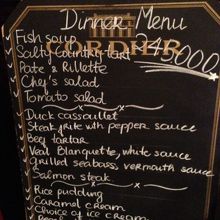 Dinner Menu
Fish soup
CORDIER
Salty Country tart
245000
Pate & Rillette
Chef's salad
Tomato salad
Duck cassoullet
Steak frite with pepper sauce
Beef tartar
Veal Blanquette, white sauce
grilled seabass, vermouth sauce
Salmon steak
Rice pudding
Caramel cream
Choice of ice cream